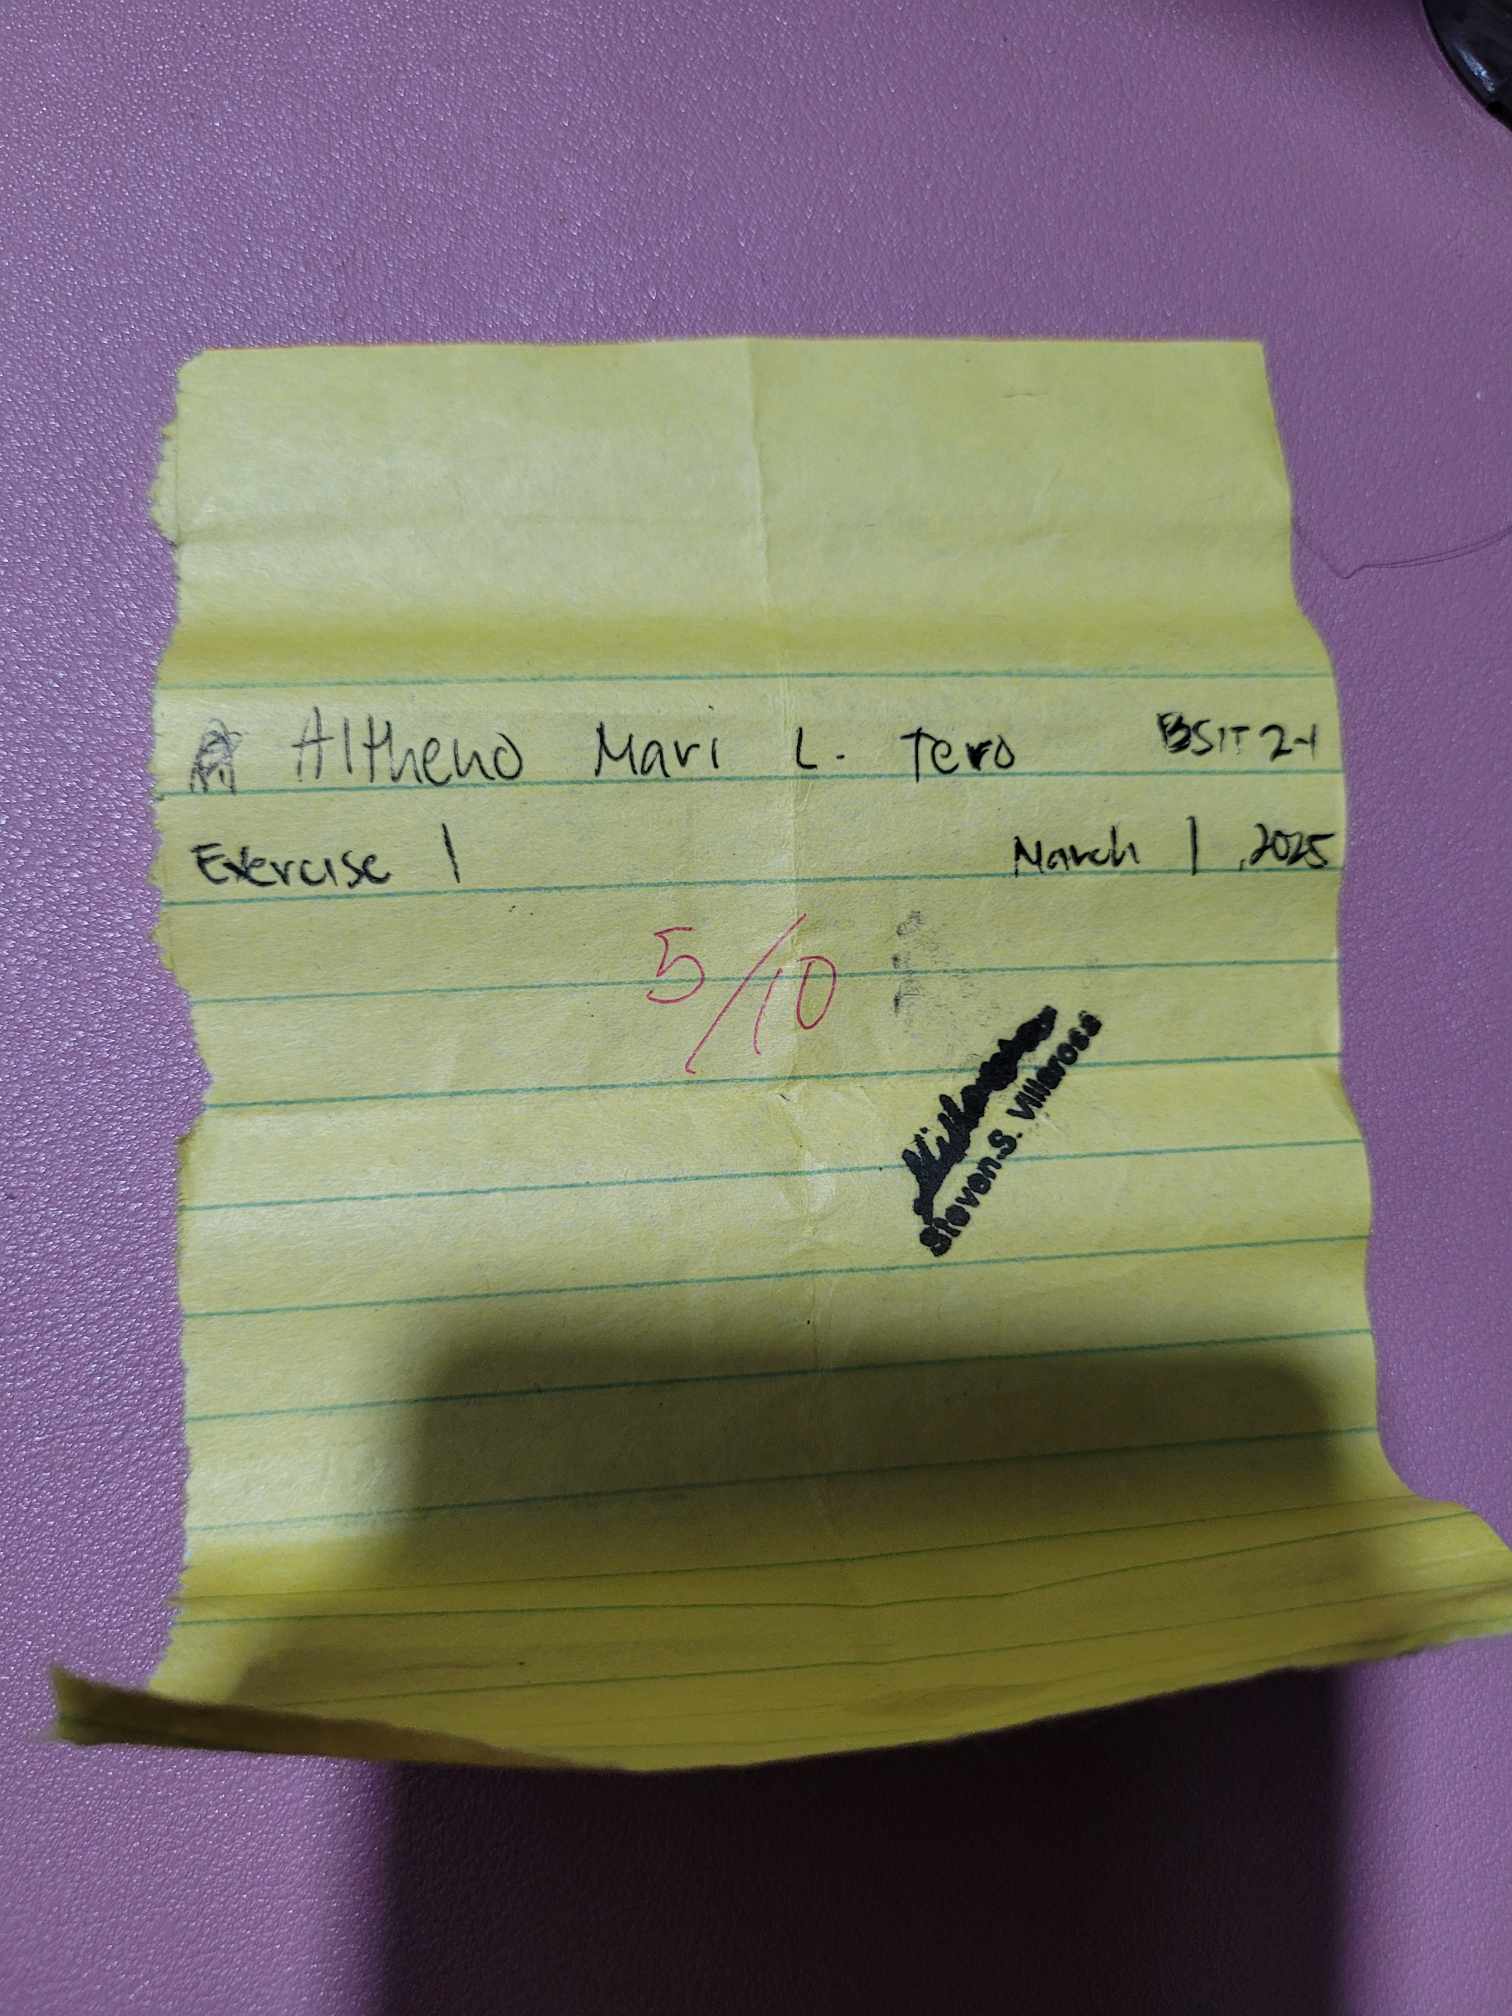 Altheno Mari L. Tero BSIT 2-1
Exercise 1 March 1, 2025
5/10
Steven S. Villarosa